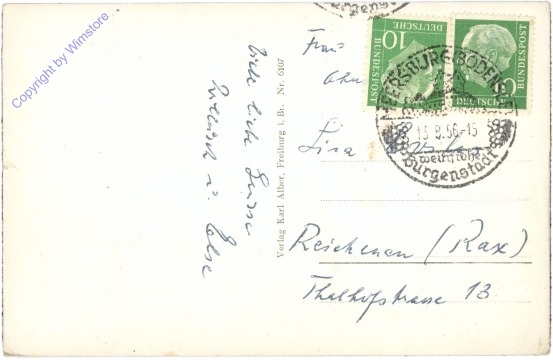 Copyright by Wimstore
Viele liebe Grüsse
u. Else
Verlag Karl Alber, Freiburg i. Br. Nr. 6107
Frau
Lisa
Reichenau (Rax)
Thalhofstrasse 13
10
DEUTSCHE
BUNDESPOST
DEUTSCHE
BUNDESPOST
MEERSBURG BODENSEE
13.8.56-15
Burgenstadt
Burgenst